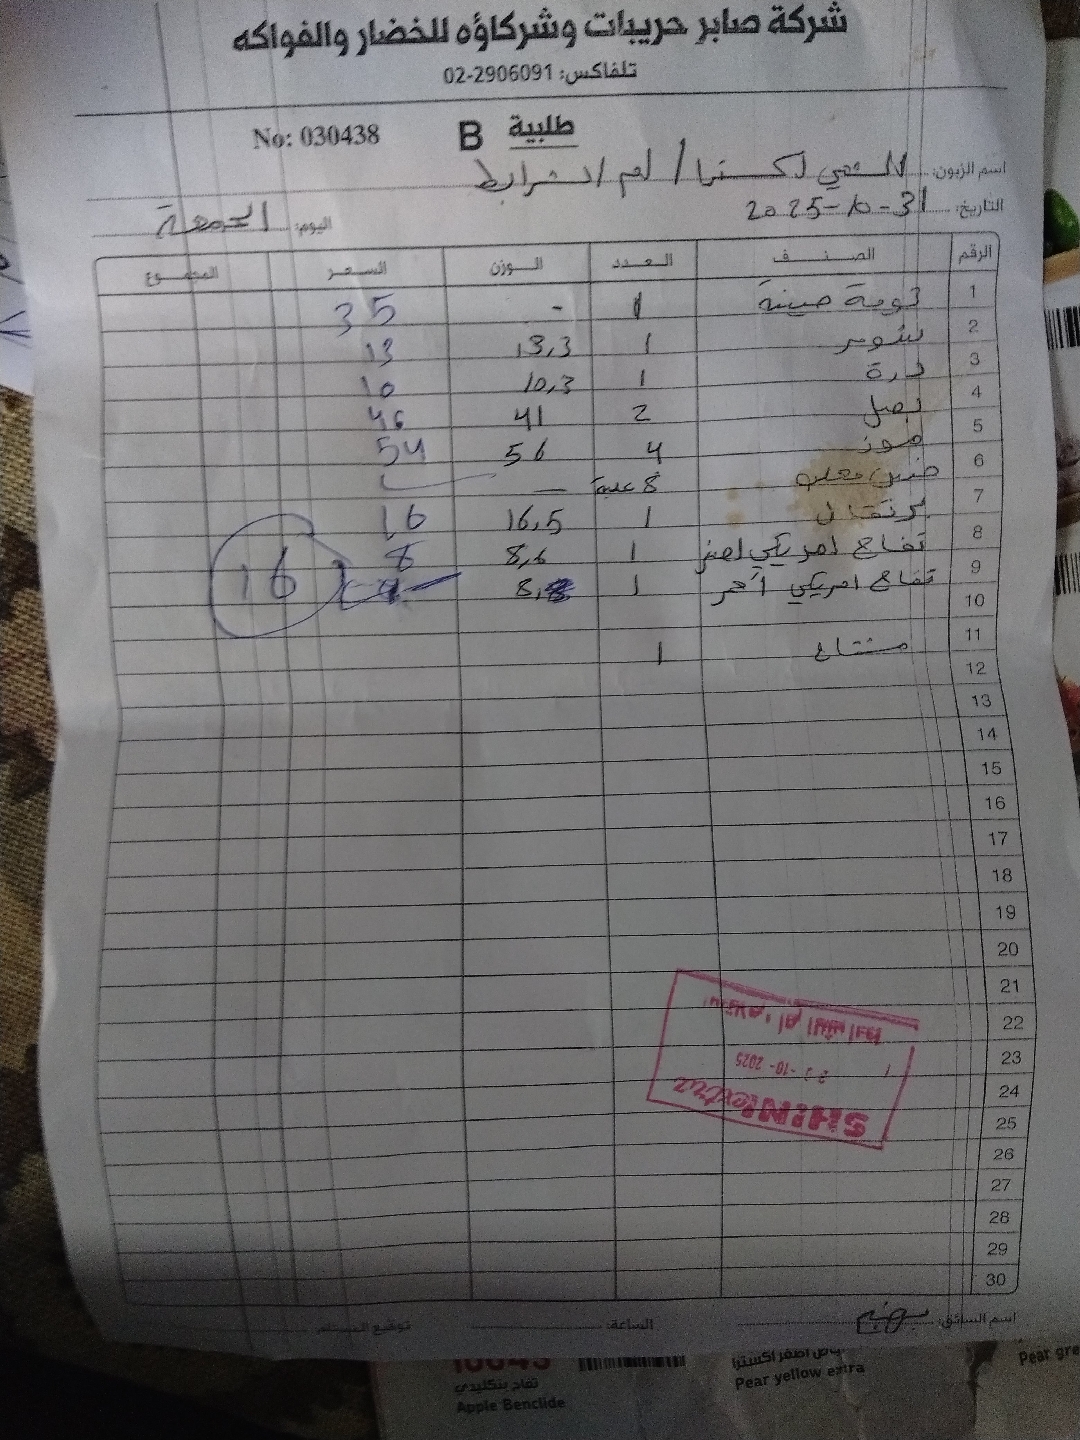 شركة صابر حريبات وشركاؤه للخضار والفواكه
تلفاكس: 02-2906091
طلبية B No: 030438
اسم الزبون: الشني اكسترا / ام الشرايط
التاريخ: 31-10-2025 اليوم: الجمعة
الرقم الصنف العدد الوزن السعر المجموع
1 ثومة صينية 1 - 35
2 شومر 1 13,3 13
3 درة 1 10,3 10
4 بصل 2 41 46
5 موز 4 56 54
6 8 علبة —
7 برتقال 1 16,5 16
8 تفاح امريكي اصفر 1 8,6 8
9 تفاح امريكي احمر 1 8,8 16
10
11 1
12
13
14
15
16
17
18
19
20
21
22
23
24
25
26
27
28
29
30
SHINIextra
-10- 2025
ام الشرايط
اسم السائق: الساعة: توقيع المستلم
10043
تفاح بنكليدي
Apple Benclide
اصفر اكسترا
Pear yellow extra
Pear gre